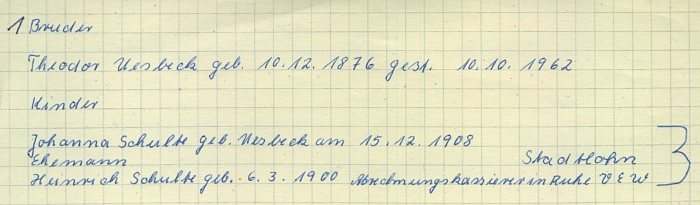 1 Bruder
Theodor Uesbeck geb. 10.12.1876 gest. 10.10.1962
Kinder
Johanna Schulte geb. Uesbeck am 15.12.1908
Ehemann Stadtlohn
Heinrich Schulte geb. 6.3.1900 Abrechnungskassierer in Ruhe VEW